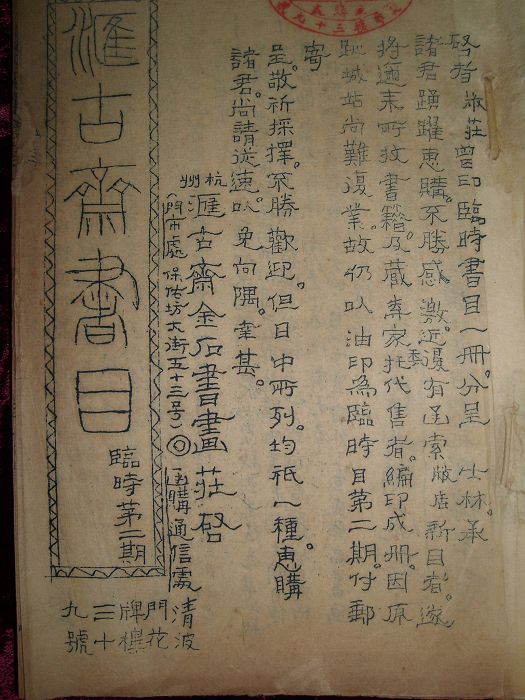 啓者 敝莊曾印臨時書目一冊。分呈 士林。承
諸君踴躍惠購。不勝感激。近有函索敝店新目者。遂
將邇來所收書籍。及藏弆家托代售者。編印成冊。因原
趾城站尚難復業。故仍以油印為臨時目第二期。付郵
寄
呈。敬祈採擇。不勝歡迎。但目中所列。均祇一種。惠購
諸君。尚請從速。以免向隅。幸甚。
杭州滙古齋金石書畫莊啓
(門市處保佑坊大街五十三號)◎函購通信處清波門花牌樓三十九號
滙古齋書目
臨時第二期